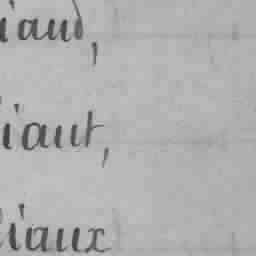 iaud,
iaut,
iaux